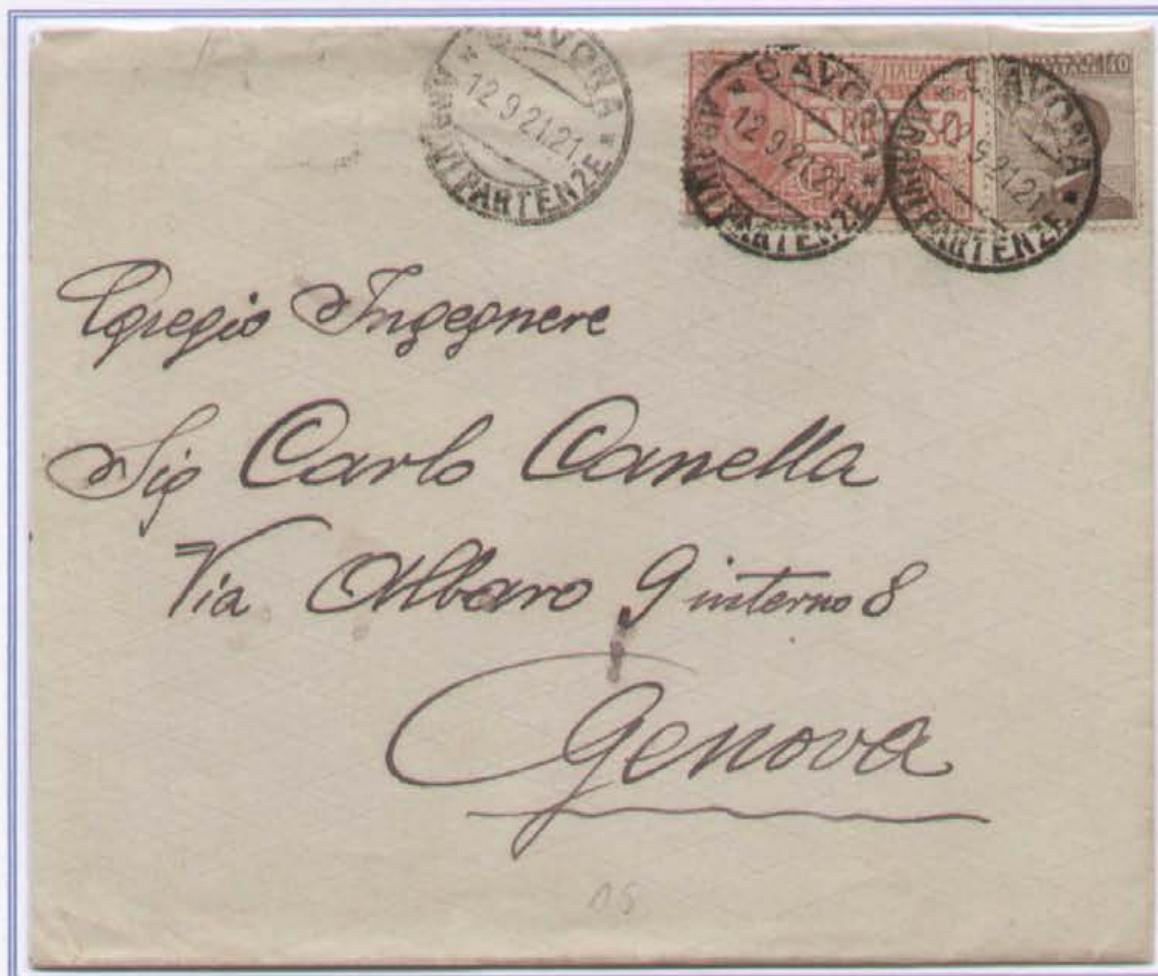 SAVONA
12.9.21.21.
ARRIVI PARTENZE
SAVONA
12.9.21.21.
ARRIVI PARTENZE
SAVONA
12.9.21.21.
ARRIVI PARTENZE
ESPRESSO
Egregio Ingegnere
Sig Carlo Canella
Via Albaro 9 interno 8
Genova